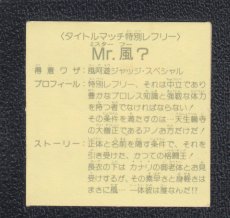 〈タイトルマッチ特別レフリー〉
ミスター フー
Mr.風？
得意ワザ：風阿遊ジャッジ・スペシャル
プロフィール：特別レフリー、それは中立であり
優なプロレス知識と強靱な体力
を持つ者でなければならない！
その条件を満たすのは…天生麗寺
の大僧正であるアノお方だけだ！
ストーリー：正体と名前を隠す条件で、それを
引き受けた、かつての格闘王！
長い衣の下はカナリの御老体とお見
受けするが、その素早さと身軽さは
まさに風…一体彼は誰なんだ!!